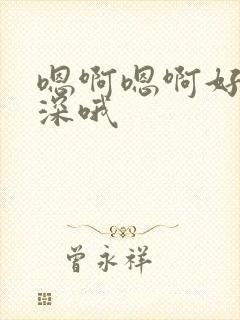 嗯啊嗯啊好
深哦
曾永祥